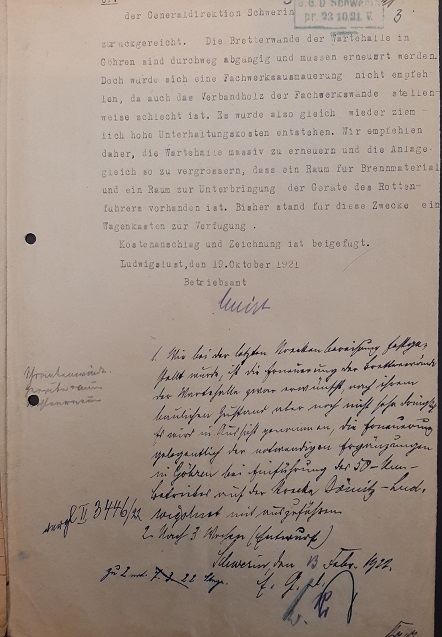 G D Schwerin
pr. 23 10 21. V.
3
der Generaldirektion Schwerin
zurückgereicht. Die Bretterwände der Wartehalle in
Göhren sind durchweg abgängig und müssen erneuert werden.
Doch würde sich eine Fachwerksausmauerung nicht empfeh-
len, da auch das Verbandholz der Fachwerkswände stellen-
weise schlecht ist. Es würde also gleich wieder ziem
lich hohe Unterhaltungskosten entstehen. Wir empfehlen
daher, die Wartehalle massiv zu erneuern und die Anlage
gleich so zu vergrössern, dass ein Raum für Brennmaterial
und ein Raum zur Unterbringung der Geräte des Rotten-
führers vorhanden ist. Bisher stand für diese Zwecke ein
Wagenkasten zur Verfügung .
Kostenanschlag und Zeichnung ist beigefügt.
Ludwigslust, den 19. Oktober 1921
Betriebsamt
1. Wie bei der letzten Streckenbereisung festge-
stellt wurde, ist die Erneuerung der Bretterwände
der Wartehalle zwar erwünscht, nach ihrem
baulichen Zustand aber noch nicht sehr dringlich
Es wird in Aussicht genommen, die Erneuerung
gelegentlich der notwendigen Ergänzungen
in Göhren bei Einführung des 50-km-
betriebes auf der Strecke Dömitz-Lud-
wigslust mit auszuführen
vergl II 3446/22
2. Nach 3 Wochen (Entwurf)
Schwerin, den 13 Febr. 1922.
zu 2 not. 7. 3 22